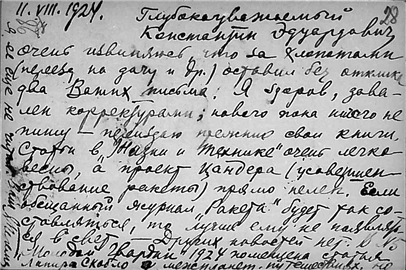 11. VIII. 1924. Глубокоуважаемый
28
Константин Эдуардович
очень извиняюсь что за хлопотами
(переезд на дачу и др.) оставил без отклика
два Ваших письма. Я здоров, зава-
лен корректурами; нового пока ничего не
пишу — переиздаю прежние свои книги.
Статьи в "Жизни и технике" очень легко-
весны, а проект Цандера (усовершен-
ствование ракеты) прямо нелеп. Если
обещанный журнал "Ракета" будет так со-
ставляться, то лучше ему не появлять-
ся в свет. Других новостей нет. В
"Молодой Гвардии" 1924 помещена статья
о межпланет. путешествиях